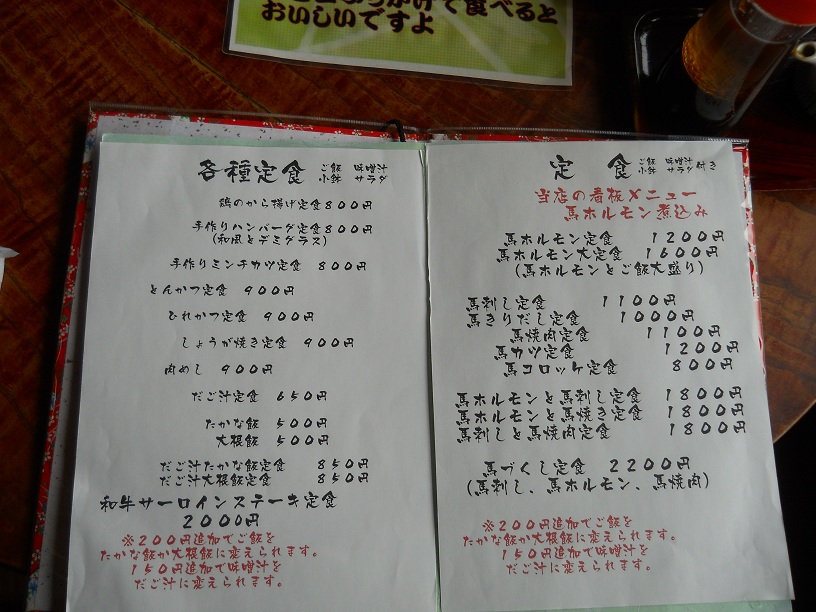 ぶっかけて食べると
おいしいですよ
各種定食 ご飯 味噌汁
小鉢 サラダ
鶏のから揚げ定食800円
手作りハンバーグ定食800円
(和風とデミグラス)
手作りミンチカツ定食 800円
とんかつ定食 900円
ひれかつ定食 900円
しょうが焼き定食 900円
肉めし 900円
だご汁定食 650円
たかな飯 500円
大根飯 500円
だご汁たかな飯定食 850円
だご汁大根飯定食 850円
和牛サーロインステーキ定食
2000円
※200円追加でご飯を
たかな飯か大根飯に変えられます。
150円追加で味噌汁を
だご汁に変えられます。
定食 ご飯 味噌汁 付き
小鉢 サラダ
当店の看板メニュー
馬ホルモン煮込み
馬ホルモン定食 1200円
馬ホルモン大定食 1600円
(馬ホルモンとご飯大盛り)
馬刺し定食 1100円
馬きりだし定食 1000円
馬焼肉定食 1100円
馬カツ定食 1200円
馬コロッケ定食 800円
馬ホルモンと馬刺し定食 1800円
馬ホルモンと馬焼き定食 1800円
馬刺しと馬焼肉定食 1800円
馬づくし定食 2200円
(馬刺し、馬ホルモン、馬焼肉)
※200円追加でご飯を
たかな飯か大根飯に変えられます。
150円追加で味噌汁を
だご汁に変えられます。